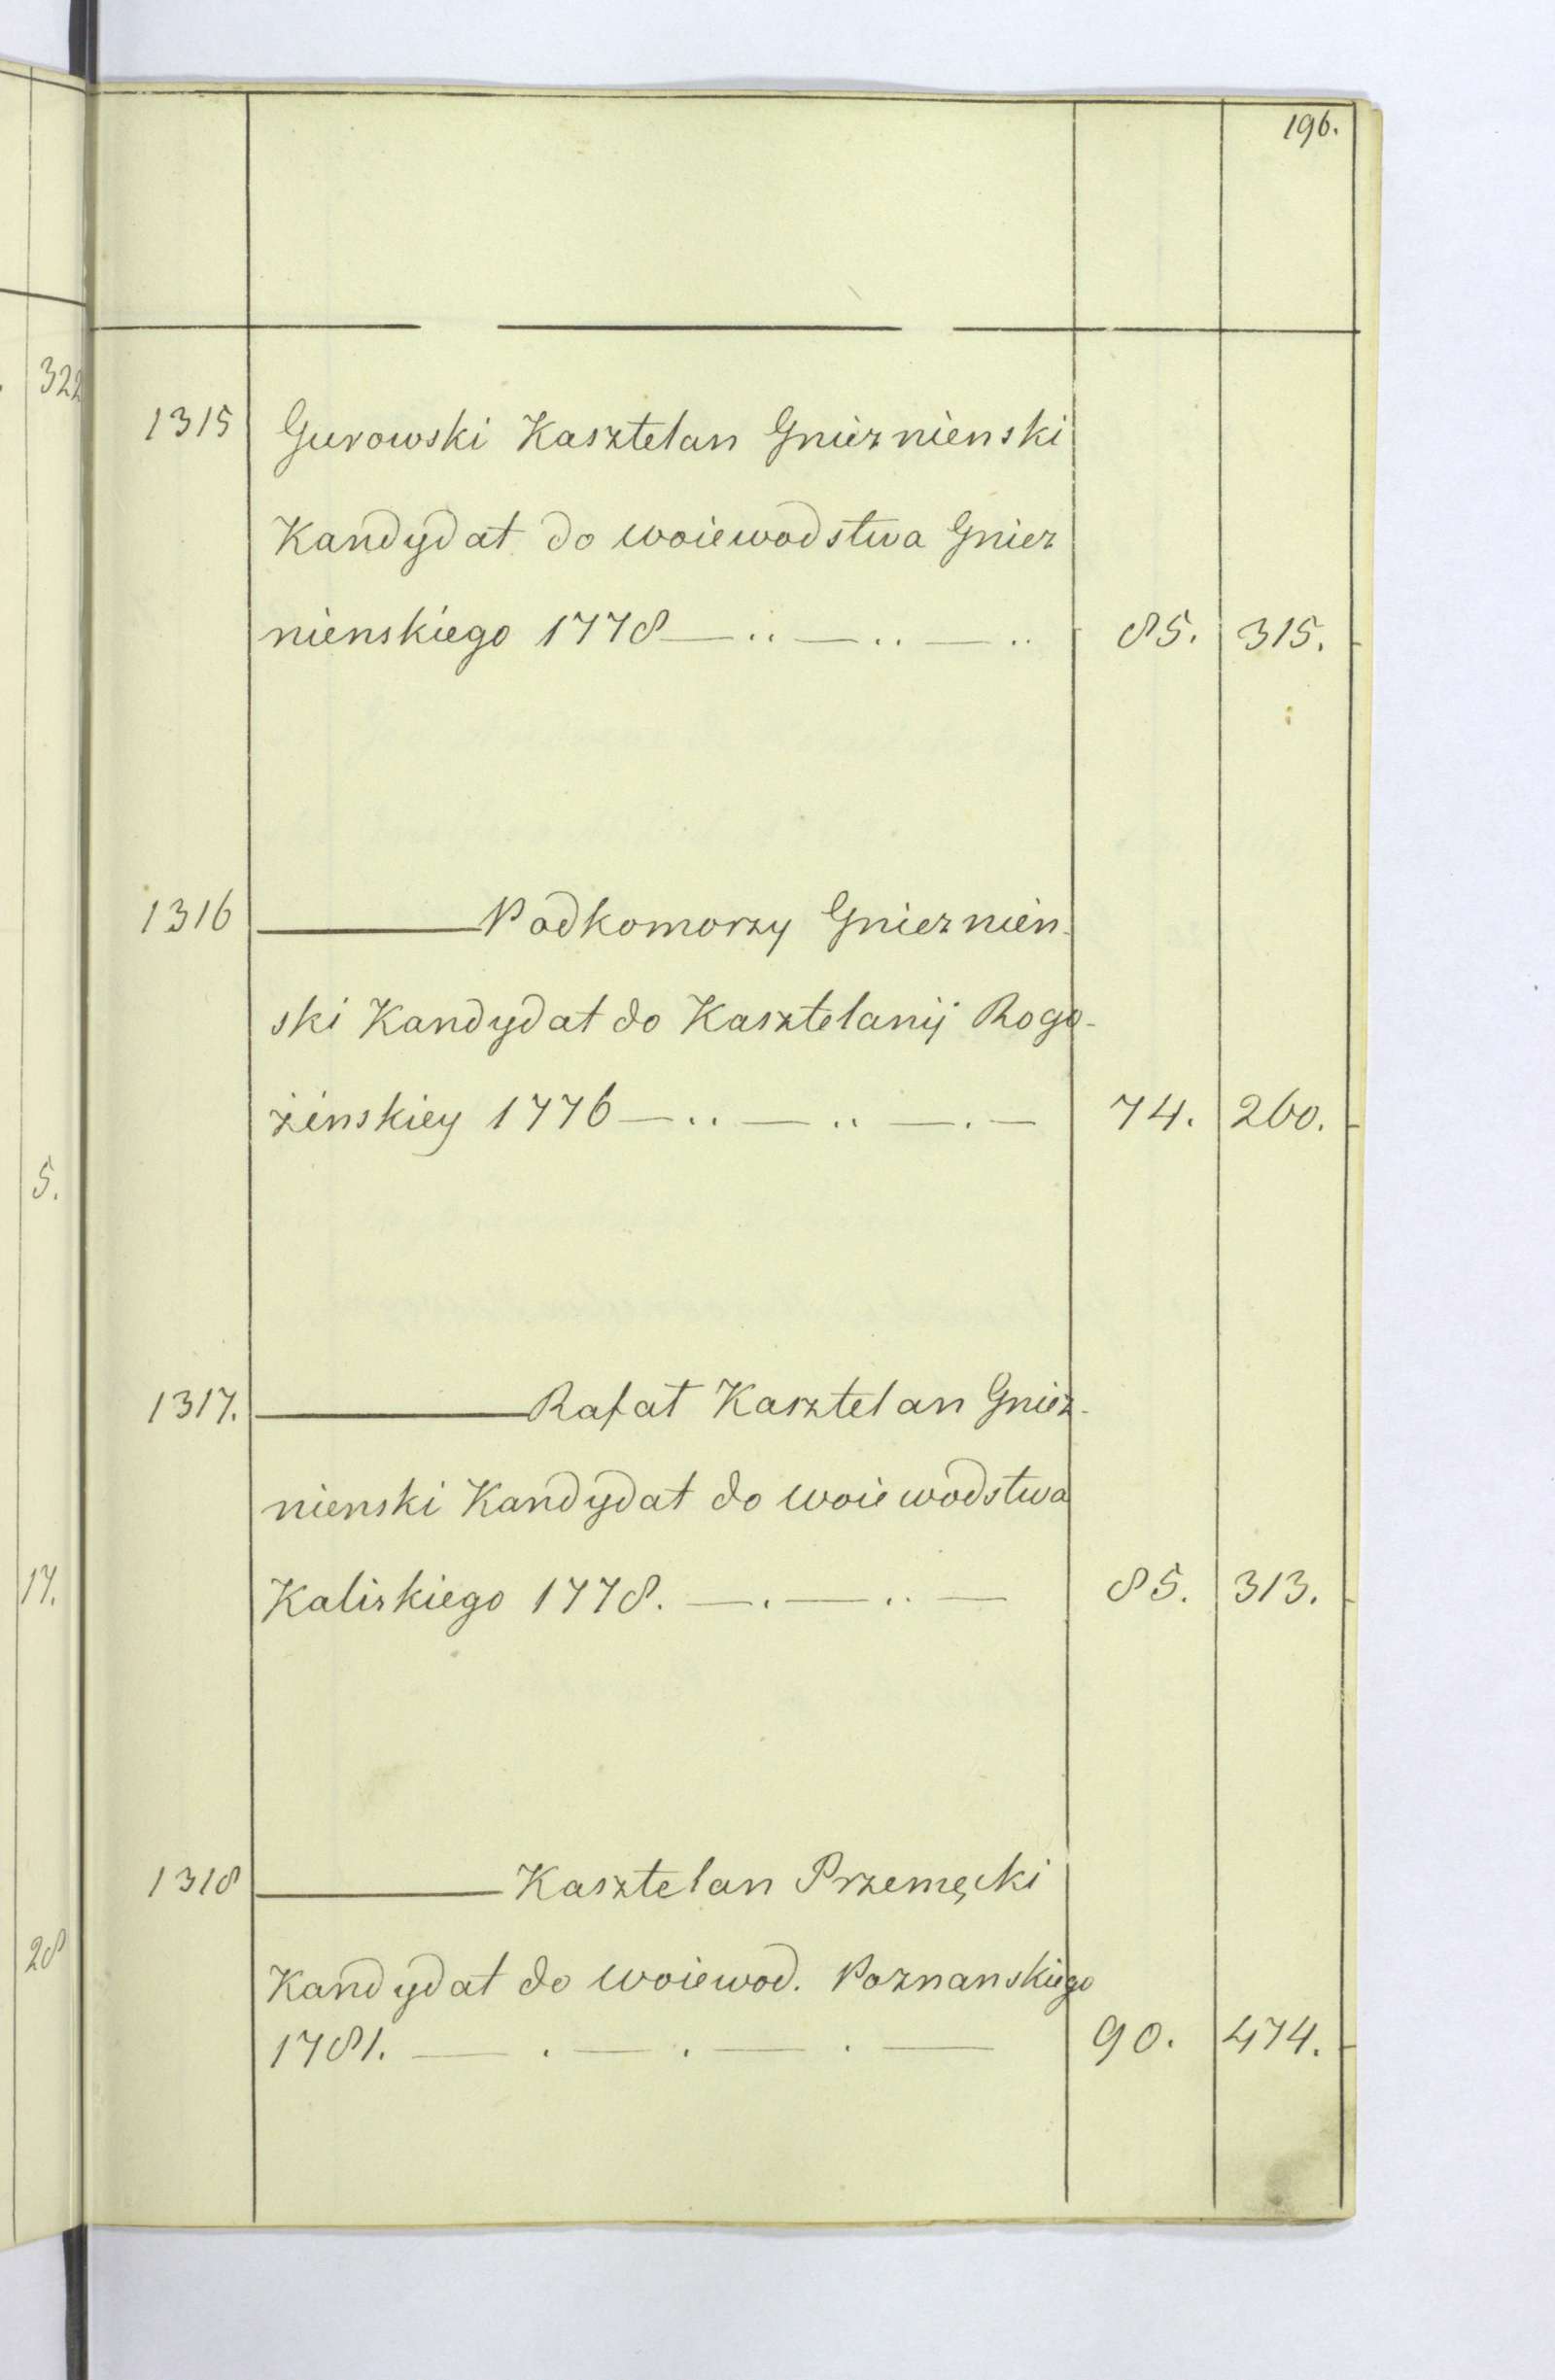 196.
322
1315 Gurowski Kasztelan Gnieznienski
Kandydat do woiewodstwa Gniez
nienskiego 1778 — .. — .. — .. 85. 315.
1316 ——— Podkomorzy Gnieznien-
ski Kandydat do Kasztelanij Rogo-
żinskiey 1776 — .. — .. — . — 74. 260.
5.
1317. ——— Rafat Kasztelan Gniez-
nienski Kandydat do woiewodstwa
Kaliskiego 1778. — . — .. — 85. 313.
17.
1318 ——— Kasztelan Przemęcki
28
Kandydat do woiewod. Poznanskiego
1781. — . — . — . — 90. 474.